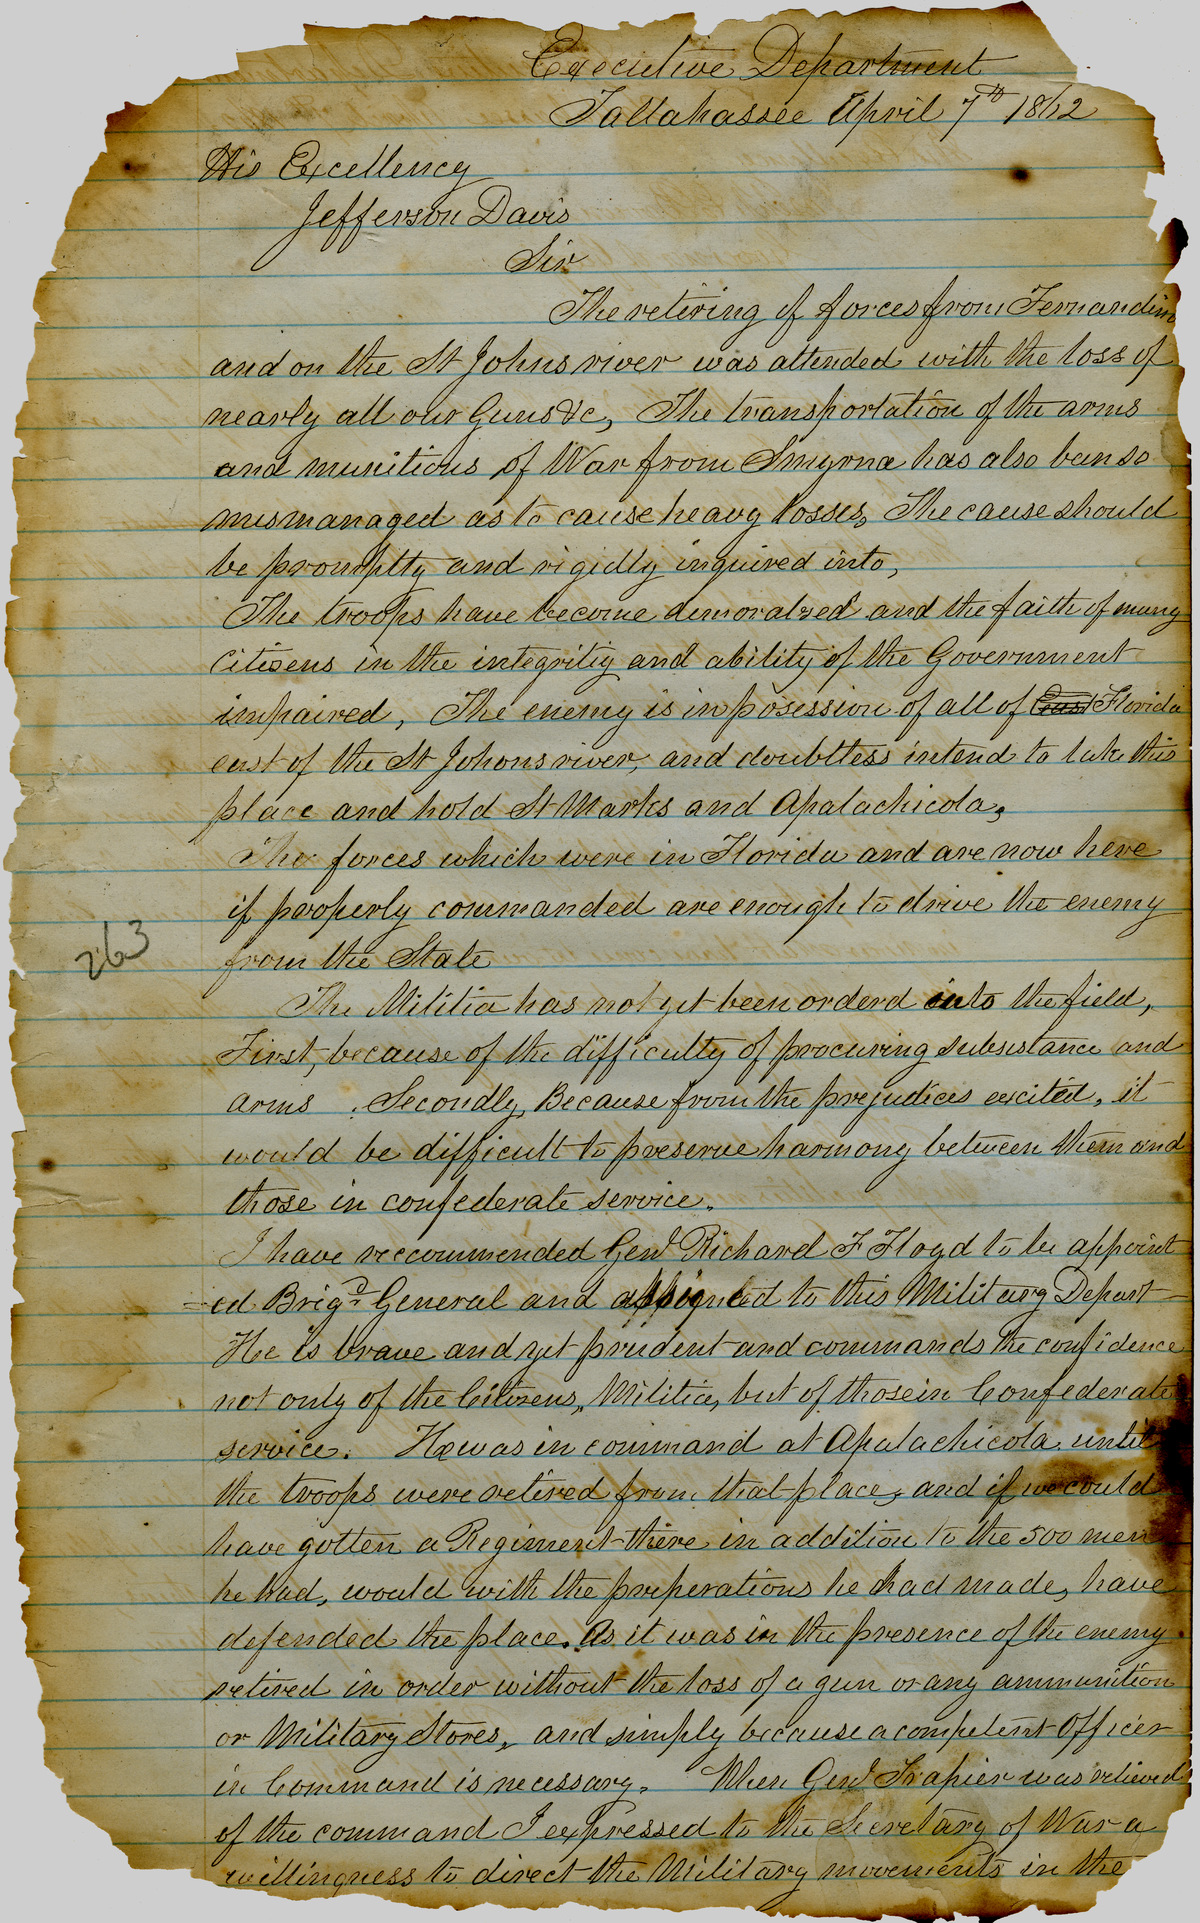 Executive Department
Tallahassee April 7th 1862
His Excellency
Jefferson Davis
Sir
The retiring of forces from Fernandina
and on the St Johns river was attended with the loss of
nearly all our Guns &c, The transportation of the arms
and munitions of War from Smyrna has also been so
mismanaged as to cause heavy losses, The cause should
be promptly and rigidly inquired into,
The troops have become demoralzed and the faith of many
Citizens in the integrity and ability of the Government
impaired, The enemy is in posession of all of East Florida
east of the St Johons river, and doubtless intend to take this
place and hold St Marks and Apalachicola,
The forces which were in Florida and are now here
if properly commanded are enough to drive the enemy
from the State
263
The Militia has not yet been orderd into the field,
First, because of the difficulty of procuring subsistance and
arms . Secondly, Because from the prejudices excited, it
would be difficult to preserve harmony between them and
those in confederate service.
I have reccommended Genl Richard F Floyd to be appoint
-ed Brigd General and assigned to this Military Depart-
He is brave and yet prudent and commands the confidence
not only of the Citizens, Militia, but of those in Confederate
service. He was in command at Apalachicola until
the troops were retired from that place, and if we could
have gotten a Regiment there in addition to the 500 men
he had, would with the preperations he had made, have
defended the place. As it was in the presence of the enemy
retired in order without the loss of a gun or any ammunition
or Military Stores, and simply because a competent Officer
in Command is necessary. When Genl Trapier was relieved
of the command I expressed to the Secretary of War a
willingness to direct the Military movements in the